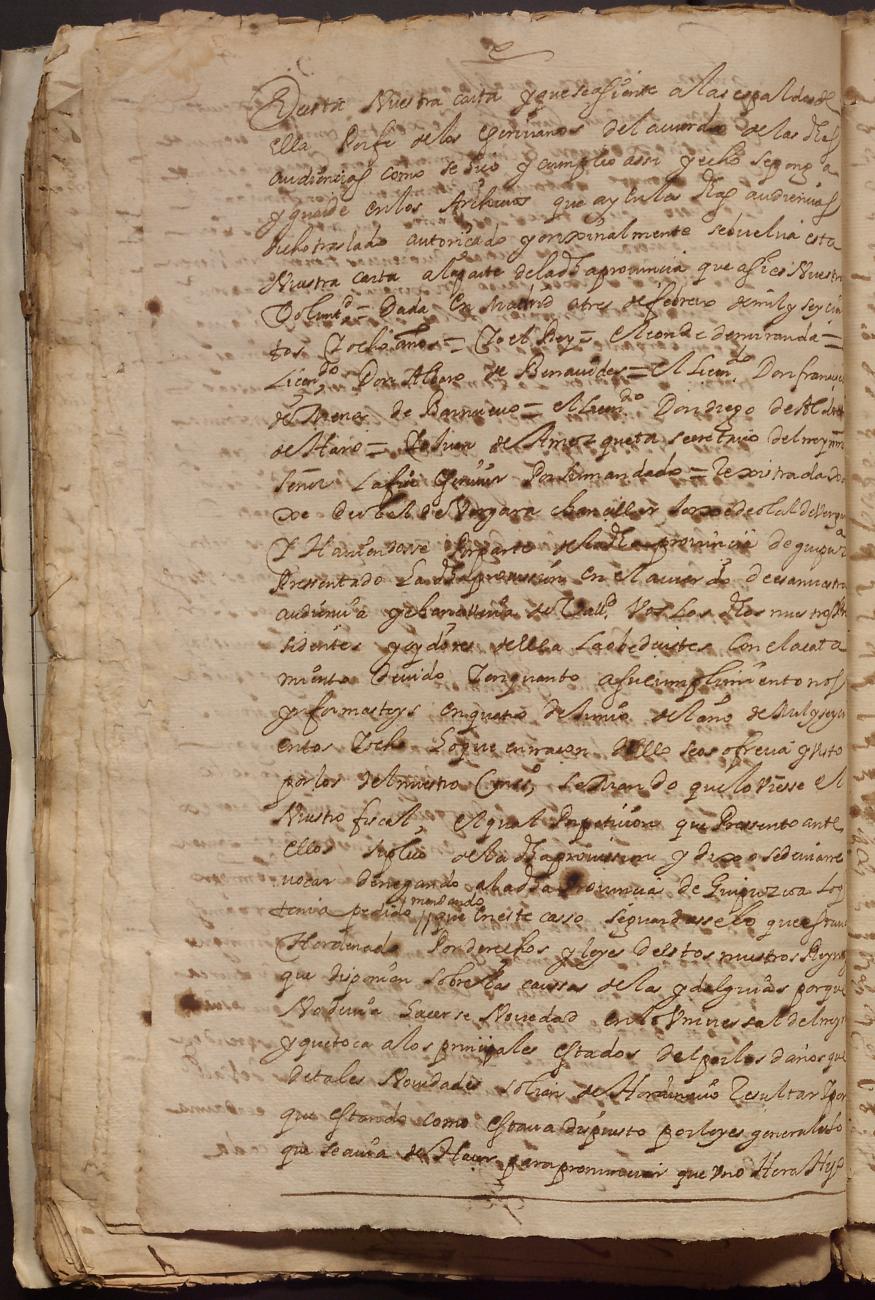 Desta Nuestra carta y que se asiente a las espaldas de
ella Por fe de los escriuanos del acuerdo de las Rs
audiencias como se hiço y cumplio assi y echo se ponga
y guarde en los Archiuos que ay en las Rs audiencias
dicho traslado autoriçado y orixinalmente se buelua esta
Nuestra carta a la parte de la dha prouincia que assi es Nuestra
Voluntd = Dada En Madrid a tres de febrero de mil y seycien
tos Y ocho años = Yo el Rey = el conde de miranda =
Licendo Don Albaro de Benauides = el Licendo Don francisco
de Mena de Barnueuo = el Licendo Don diego de Aldrete
de Haro = Yo Juan de Amezqueta secretario del rey nro
señor La fiz escriuir Por su mandado = Rexistrada
xe de olalde Vergara chanciller Jorxe de olalde Vergara
Y Hauiendose Por parte de la dha prouincia de guipuz
Pressentado La dha prouission en el acuerdo de esa nuestra
audiencia y chancilleria de Valld Vos Los dhos nuestros Pre
sidente y oydores della La obedecistes Con el acata
miento deuido Y en quanto a su cumplimiento nos
ynformasteys en quatro de Junio del año de Mil y seyci
entos Y ocho Lo que en racon dello se os ofrecia y Visto
por los del nuestro Conso, se Mando que lo Viesse el
Nuestro fiscal el qual Por peticion que Pressento ante
Ellos suplico de la dha prouission y dixo se deuia re
uocar denegando a la dha Prouincia de Guipuzcoa Lo q
tenia pedido y mandando que en este casso se guardasse lo que estaua
Y Hordenado Por derechos y leyes destos nuestros Reynos
que disponian sobre las caussas de las ydalguias porque
No deuia hacerse Nouedad en lo Vniuersal del reyno
y que toca a los principales estados del por los daños que
de tales Nouedades solian de Hordinario Resultar Y por
que estando como estaua dispuesto por leyes generales lo
que se auia de Hacer para pronunciar que vno Hera Hijo